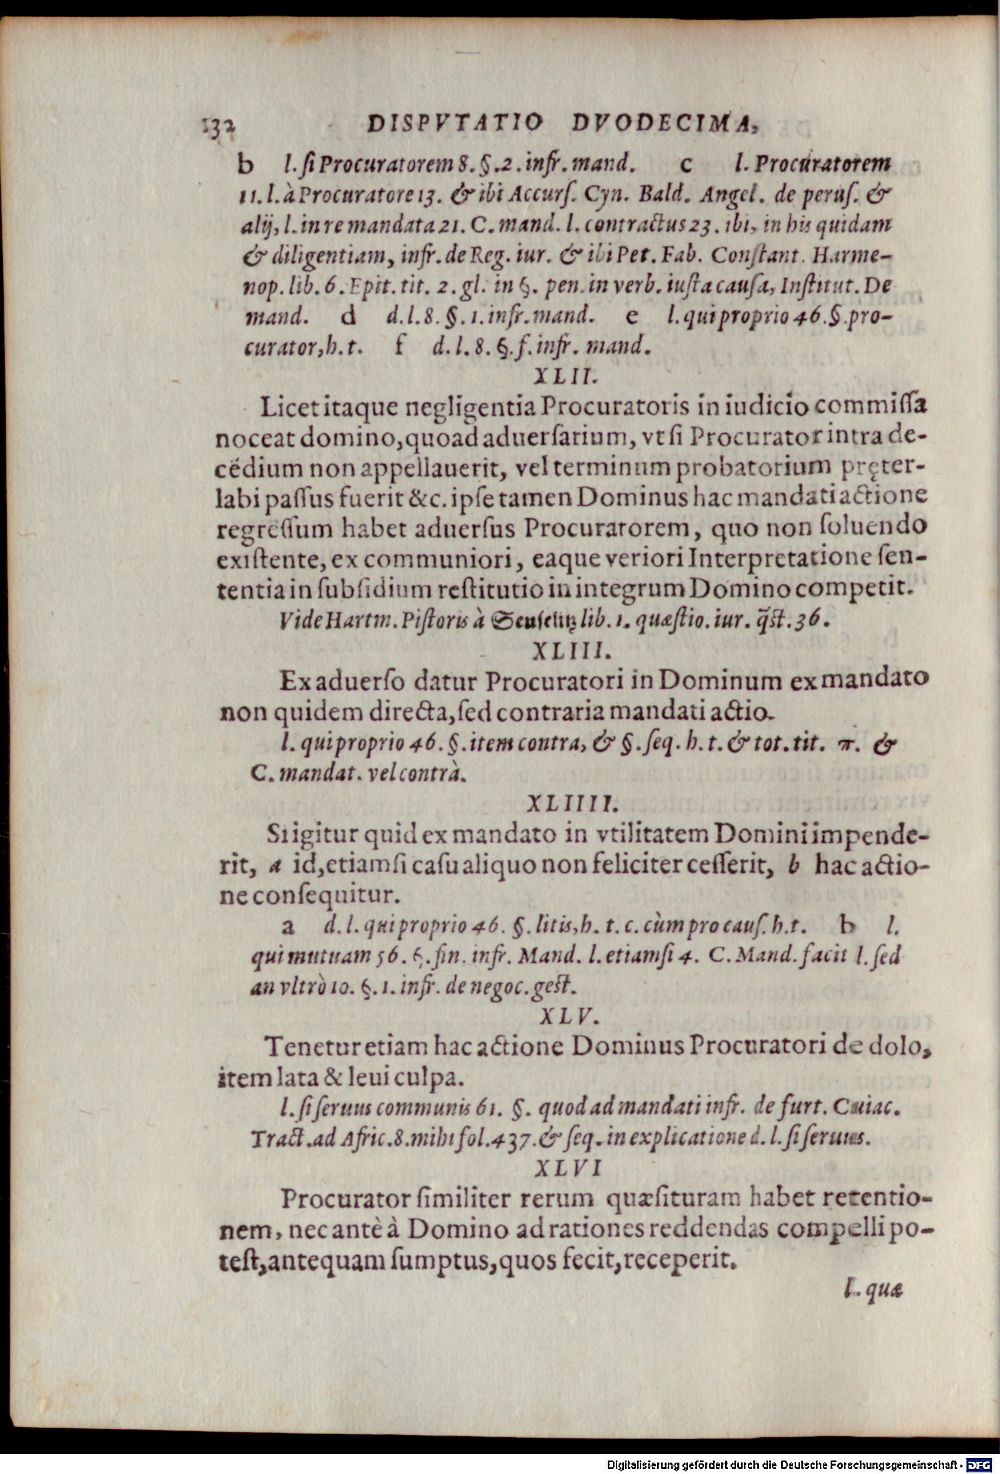 132 DISPVTATIO DVODECIMA,
b l. ſi Procuratorem 8. §. 2. infr. mand. c l. Procuratorem
11. l. à Procuratore 13. & ibi Accurſ. Cyn. Bald. Angel. de peruſ. &
alij, l. in re mandata 21. C. mand. l. contractus 23. ibi, in his quidam
& diligentiam, infr. de Reg. iur. & ibi Pet. Fab. Conſtant. Harme-
nop. lib. 6. Epit. tit. 2. gl. in §. pen. in verb. iuſta cauſa, Inſtitut. De
mand. d d. l. 8. §. 1. infr. mand. e l. qui proprio 46. §. pro-
curator, h. t. f d. l. 8. §. f. infr. mand.
XLII.
Licet itaque negligentia Procuratoris in iudicio commiſſa
noceat domino, quoad aduerſarium, vt ſi Procurator intra de-
cēdium non appellauerit, vel terminum probatorium pręter-
labi paſſus fuerit &c. ipſe tamen Dominus hac mandati actione
regreſſum habet aduerſus Procuratorem, quo non ſoluendo
exiſtente, ex communiori, eaque veriori Interpretatione ſen-
tentia in ſubſidium reſtitutio in integrum Domino competit.
Vide Hartm. Piſtoris à Seuſelitz lib. 1. quæſtio. iur. q̃ſt. 36.
XLIII.
Ex aduerſo datur Procuratori in Dominum ex mandato
non quidem directa, ſed contraria mandati actio.
l. qui proprio 46. §. item contra, & §. ſeq. h. t. & tot. tit. π. &
C. mandat. vel contrà.
XLIIII.
Si igitur quid ex mandato in vtilitatem Domini impende-
rit, a id, etiamſi caſu aliquo non feliciter ceſſerit, b hac actio-
ne conſequitur.
a d. l. qui proprio 46. §. litis, h. t. c. cùm pro cauſ. h. t. b l.
qui mutuam 56. §. fin. infr. Mand. l. etiamſi 4. C. Mand. facit l. ſed
an vltrò 10. §. 1. infr. de negoc. geſt.
XLV.
Tenetur etiam hac actione Dominus Procuratori de dolo,
item lata & leui culpa.
l. ſi ſeruus communis 61. §. quod ad mandati infr. de furt. Cuiac.
Tract. ad Afric. 8. mihi fol. 437. & ſeq. in explicatione d. l. ſi ſeruus.
XLVI
Procurator ſimiliter rerum quæſituram habet retentio-
nem, nec antè à Domino ad rationes reddendas compelli po-
teſt, antequam ſumptus, quos fecit, receperit.
l. quæ
Digitalisierung gefördert durch die Deutsche Forschungsgemeinschaft - DFG